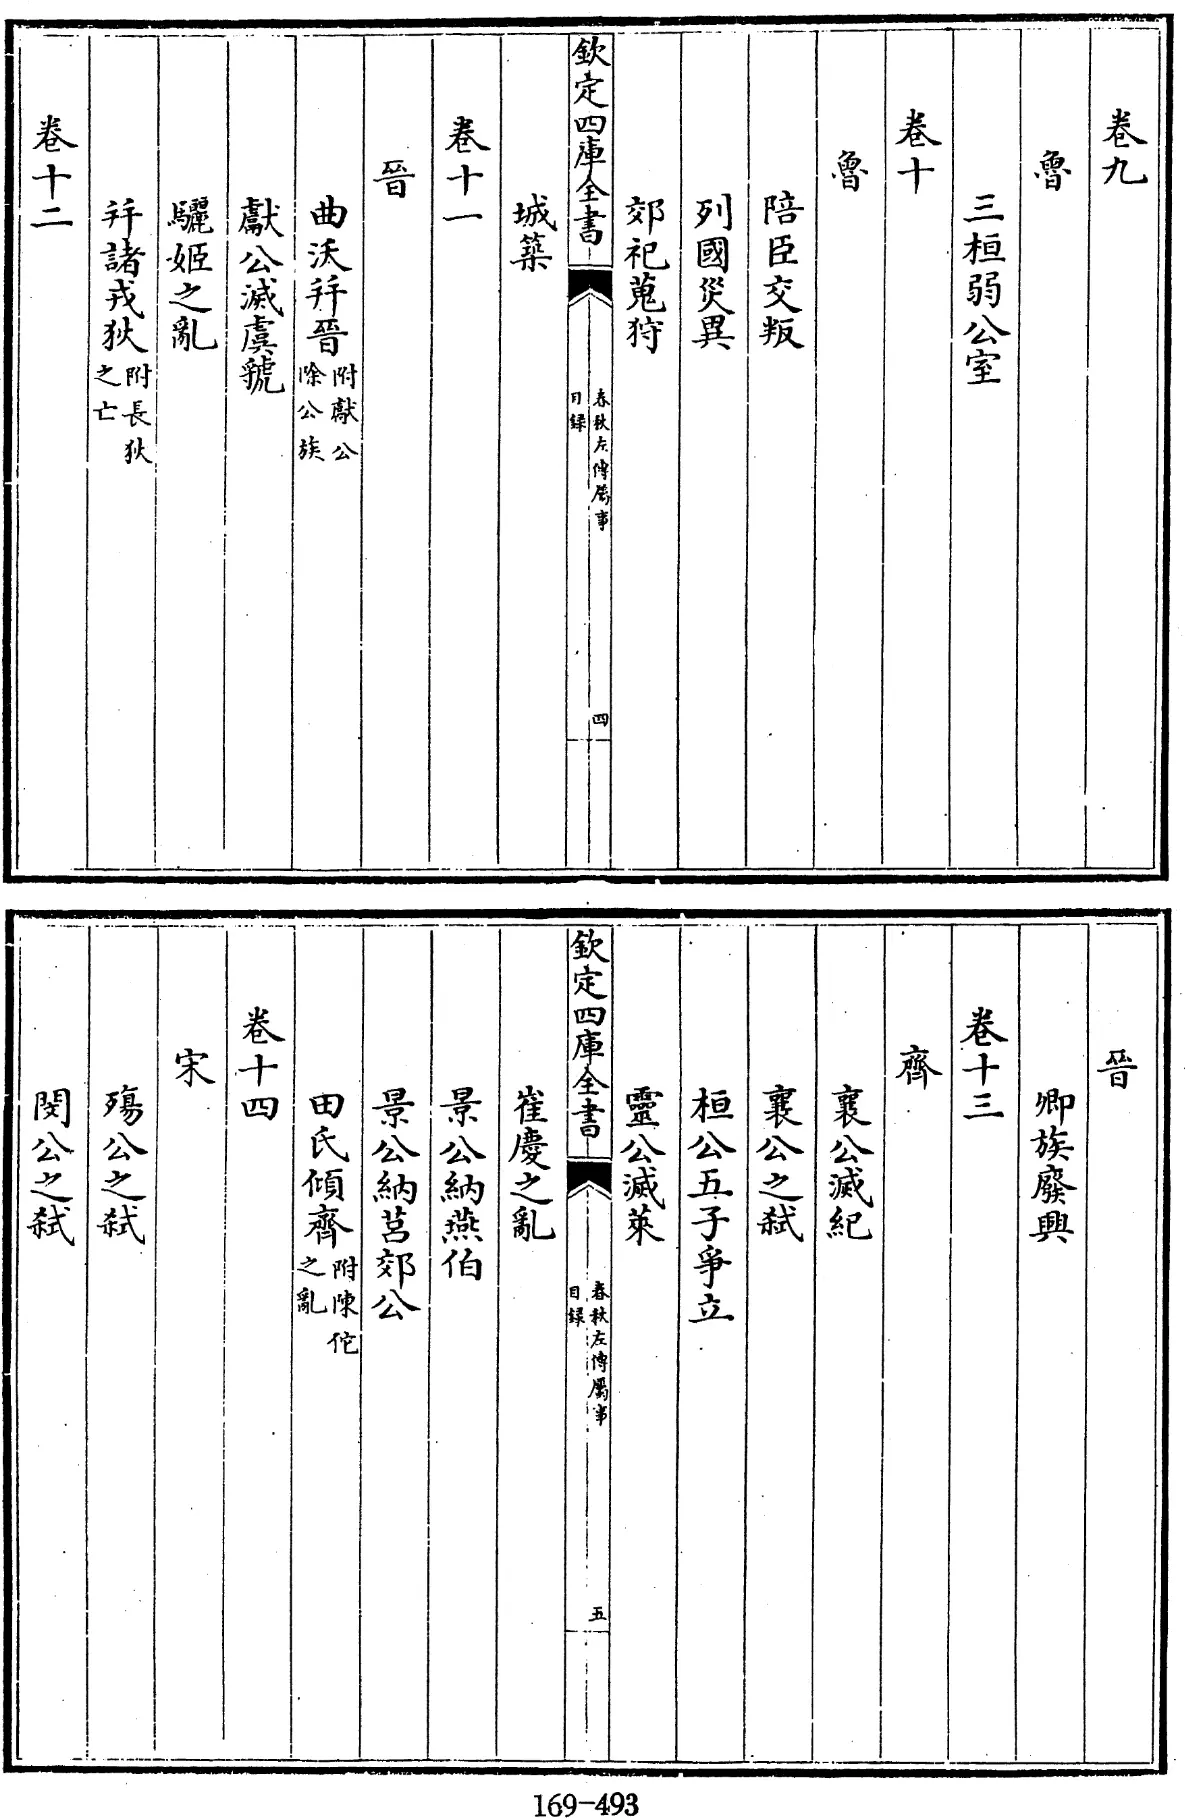 卷九
魯
三桓弱公室
卷十
魯
陪臣交叛
列國災異
郊祀蒐狩
欽定四庫全書
春秋左傳屬事
目録
四
城築
卷十一
晉
曲沃幷晉附獻公除公族
獻公滅虞虢
驪姬之亂
幷諸戎狄附長狄之亡
卷十二
晉
卿族廢興
卷十三
齊
襄公滅紀
襄公之弑
桓公五子爭立
靈公滅萊
欽定四庫全書
春秋左傳屬事
目録
五
崔慶之亂
景公納燕伯
景公納莒郊公
田氏傾齊附陳佗之亂
卷十四
宋
殤公之弑
閔公之弑
169-493